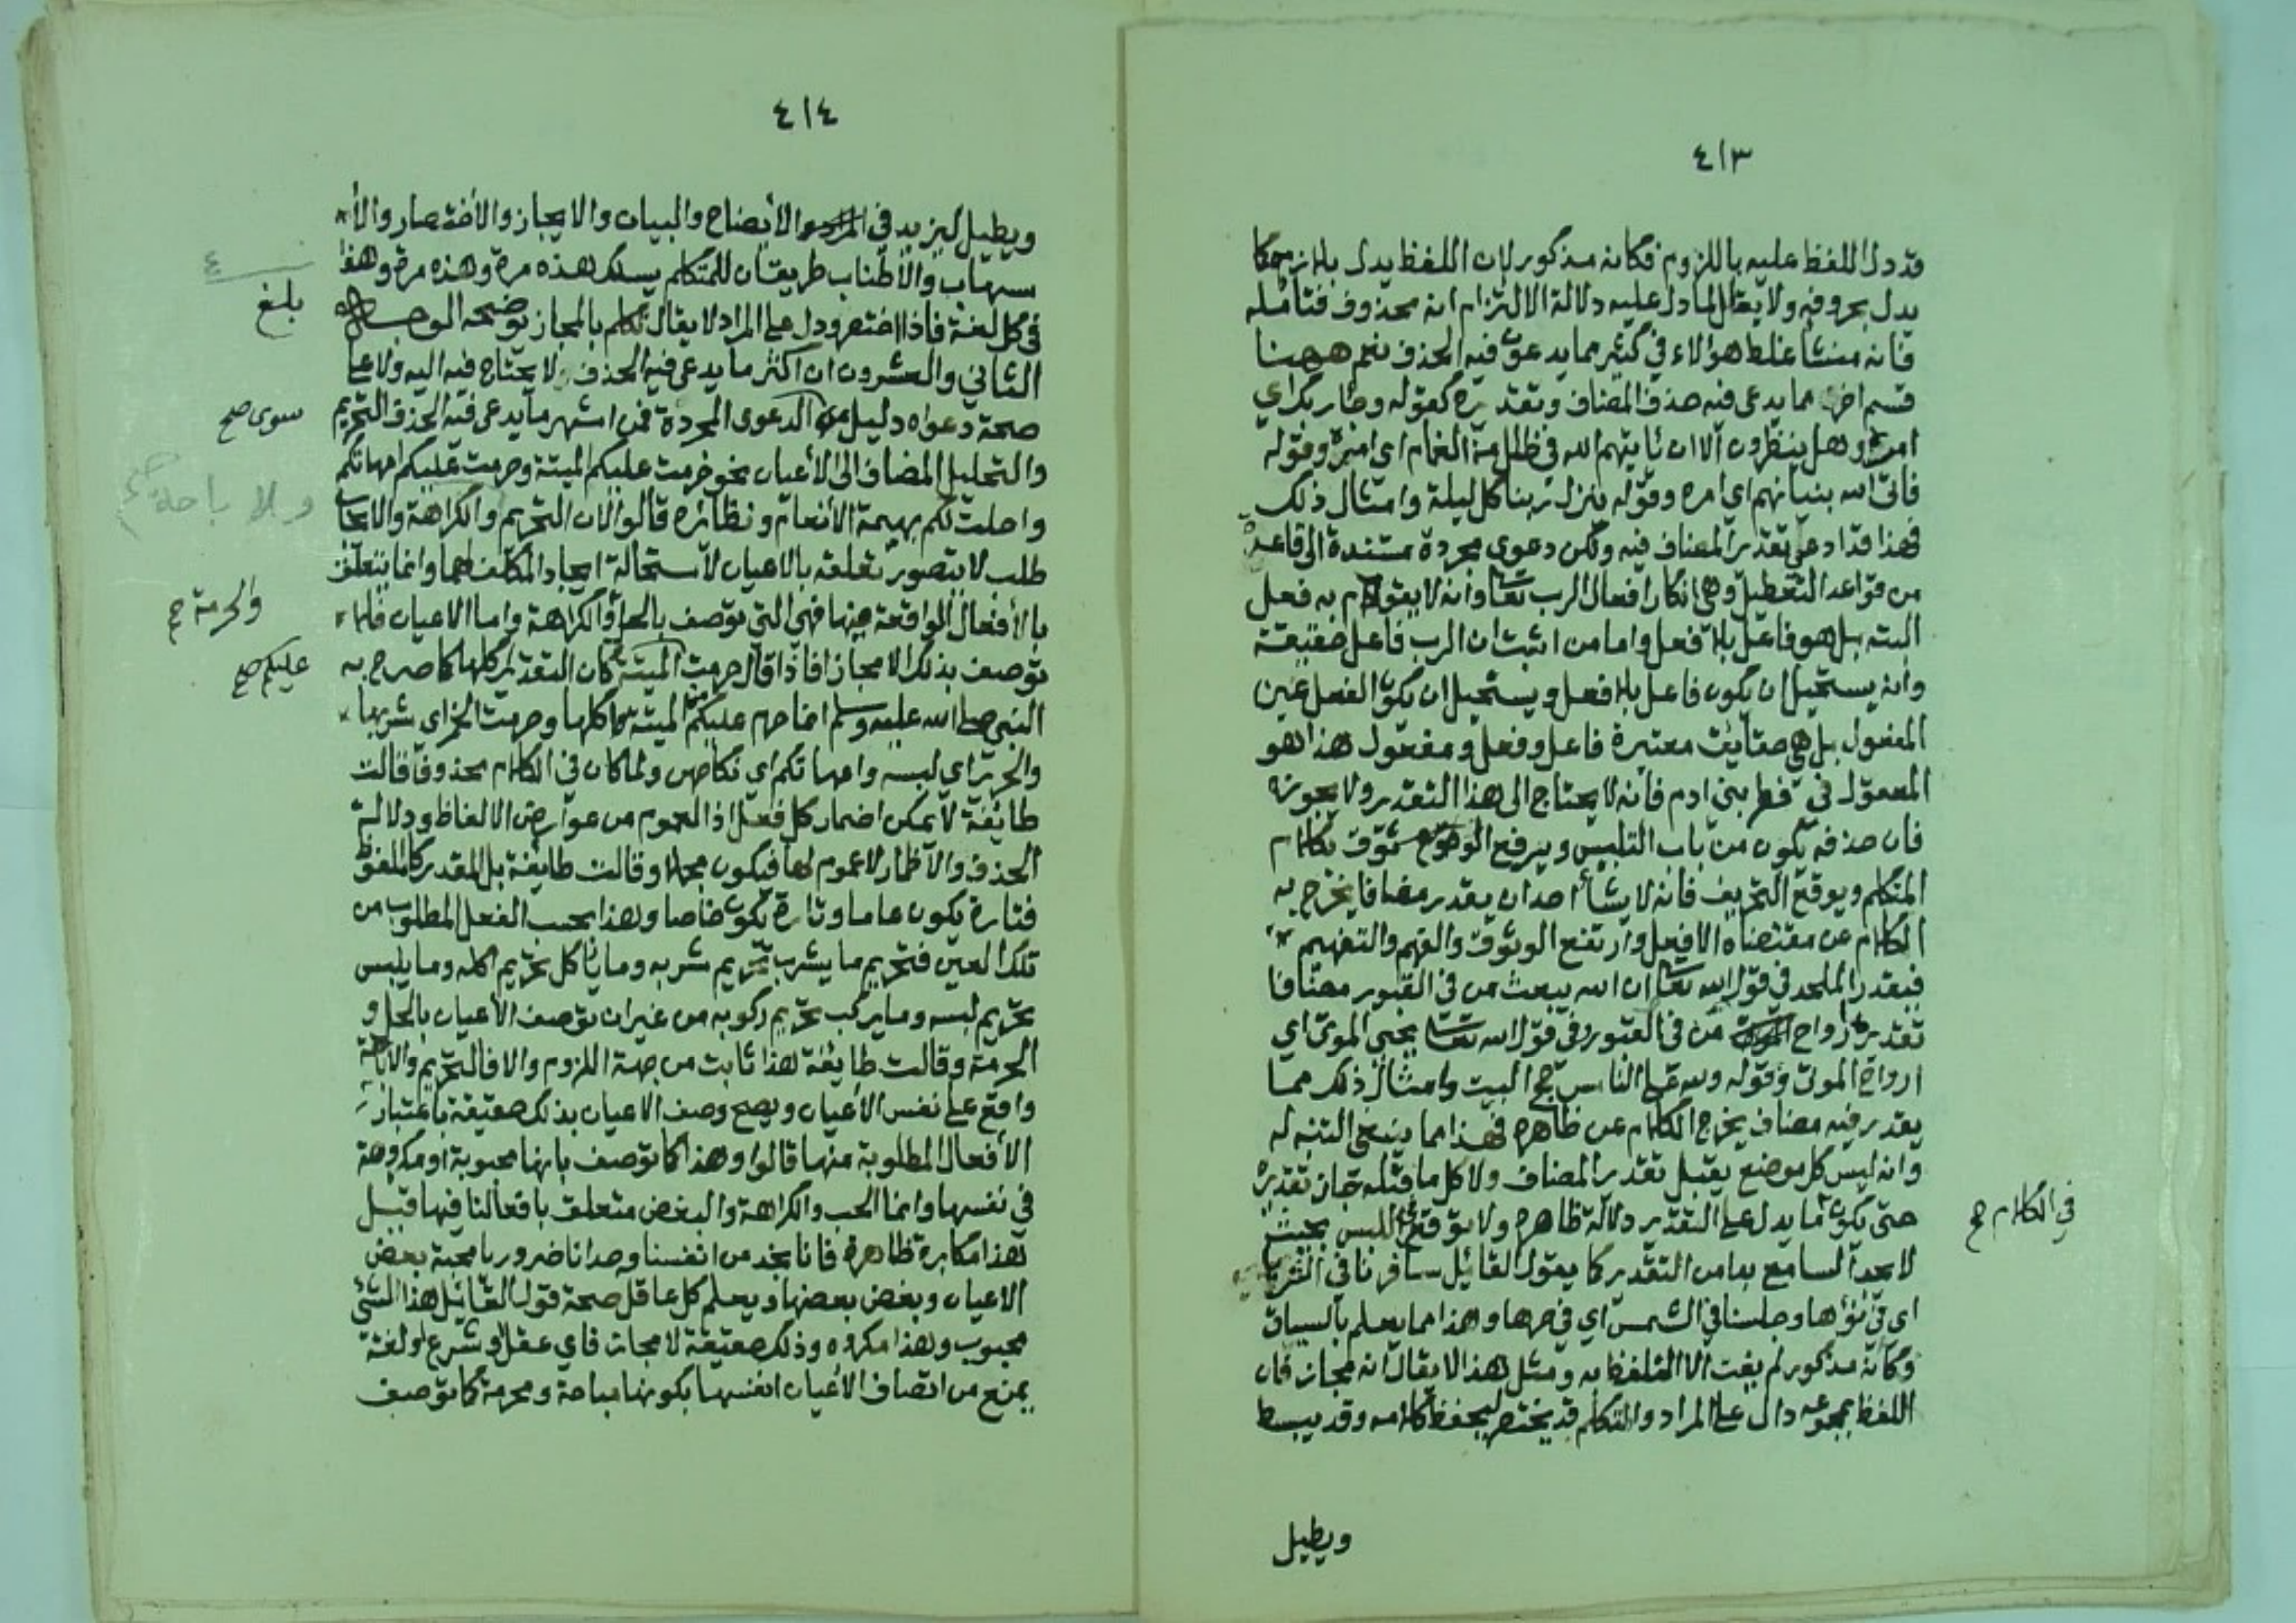 ٤١٣
قد دل اللفظ عليه باللزوم فكانه مذكور لان اللفظ يدل بلازمه كما
يدل بحروفه ولا يقال لما دل عليه دلالة الالتزام انه محذوف فتامله
فانه منشأ غلط هولاء في كثير مما يدعون فيه الحذف نعم ههنا
قسم اخر مما يدعى فيه حذف المضاف وتقديره كقوله وجاء ربك اي
امره وهل ينظرون الا ان ياتيهم الله في ظلل من الغمام اي امره وقوله
فاتى الله بنيانهم اي امره وقوله ينزل ربنا كل ليلة وامثال ذلك
فهذا قد ادعي تقدير المضاف فيه ولكن دعوى مجردة مستندة الى قاعدة
من قواعد التعطيل وهي انكار افعال الرب تعا وانه لا يقوم به فعل
البته بل هو فاعل بلا فعل واما من اثبت ان الرب فاعل حقيقة
وانه يستحيل ان يكون فاعل بلا فعل ويستحيل ان يكون الفعل عين
المفعول بل هي حقايق معتبرة فاعل وفعل ومفعول هذا هو
المعقول في فطر بني ادم فانه لا يحتاج الى هذا التقدير ولا يجوزه
فان حذفه يكون من باب التلبيس ويرفع الوثوق بكلام
المتكلم ويوقع التحريف فانه لا يشأ احد ان يقدر مضافا يخرج به
الكلام عن مقتضاه الا فعل وارتفع الوثوق والفهم والتفهيم
فيقدر الملحد في قول الله تعا ان الله يبعث من في القبور مضافا
تقديره ارواح من في القبور وفي قول الله تعا يحيي الموتى اي
ارواح الموتى وقوله ولله على الناس حج البيت وامثال ذلك مما
يقدر فيه مضاف يخرج الكلام عن ظاهره فهذا مما ينبغي التنبه له
وانه ليس كل موضع يقبل تقدير المضاف ولا كل ما قبله جاز تقديره
حتى يكون ما يدل على التقدير دلالة ظاهره ولا يوقع اللبس بحيث
في الكلام صح
لا يجد السامع بدا من التقدير كما يقول القائل سافرنا في الثريا
اي في نوءها وجلسنا في الشمس اي في حرها وهذا مما يعلم بالسياق
وكانه مذكور لم يفت الا التلفظ به ومثل هذا لا يقال انه مجاز فان
اللفظ بمجموعه دال على المراد والمتكلم قد يختصر ليحفظ كلامه وقد يبسط
ويطيل
٤١٤
ويطيل ليزيد في الأيضاح والبيان والايجاز والأختصار والأ
سهاب والأطناب طريقتان للمتكلم يسلك هذه مرة وهذه مرة وهذا
في كل لغة فاذا اختصر ودل على المراد لا يقال تكلم بالمجاز توضحه الوجه
بلغ
الثاني والعشرون ان اكثر ما يدعى فيه الحذف لا يحتاج فيه اليه ولا على
صحة دعواه دليل الدعوى المجردة فمن اشهر ما يدعى فيه الحذف التحريم
سوى صح
والتحليل المضاف الى الأعيان نحو حرمت عليكم الميتة وحرمت عليكم امهاتكم
واحلت لكم بهيمة الأنعام ونظائره قالوا لان التحريم والكراهة والايجاب
ولا باحة صح
طلب لا يتصور تعلقه بالاعيان لاستحالة ايجاد المكلف لها وانما يتعلق
بالأفعال الواقعة فيها فهي التي توصف بالحل والكراهة واما الاعيان فلا
والحرمة صح
توصف بذلك الا مجازا فاذا قال حرمت الميتة كان التقدير اكلها كما صرح به
عليكم صح
النبي صلى الله عليه وسلم انما حرم عليكم من الميتة اكلها وحرمت الخمر اي شربها
والحرير اي لبسه وامهاتكم اي نكاحهن ولما كان في الكلام محذوفا قالت
طايفة لا يمكن اضمار كل فعل اذ العموم من عوارض الالفاظ ودلالة
الحذف والاظمار لا عموم لها فيكون مجملا وقالت طايفة بل المقدر كالملفوظ
فتارة يكون عاما وتارة يكون خاصا وهذا بحسب الفعل المطلوب من
تلك العين فتحريم ما يشرب تحريم شربه وما ياكل تحريم اكله وما يلبس
تحريم لبسه وما يركب تحريم ركوبه من غير ان توصف الأعيان بالحل و
الحرمة وقالت طايفة هذا ثابت من جهة اللزوم والا فالتحريم والاباحة
واقع على نفس الأعيان ويصح وصف الاعيان بذلك حقيقة باعتبار
الأفعال المطلوبة منها قالوا وهذا كما توصف بانها محبوبة او مكروهة
في نفسها وانما الحب والكراهة والبغض متعلق بافعالنا فيها قيل
هذا مكابرة ظاهرة فانا نجد من انفسنا وجدانا ضروريا محبة بعض
الاعيان وبغض بعضها ويعلم كل عاقل صحة قول القائل هذا الشئ
محبوب وهذا مكروه وذلك حقيقة لا مجاز فاي عقل او شرع او لغة
يمنع من اتصاف الأعيان انفسها بكونها مباحة ومحرمة كما توصف